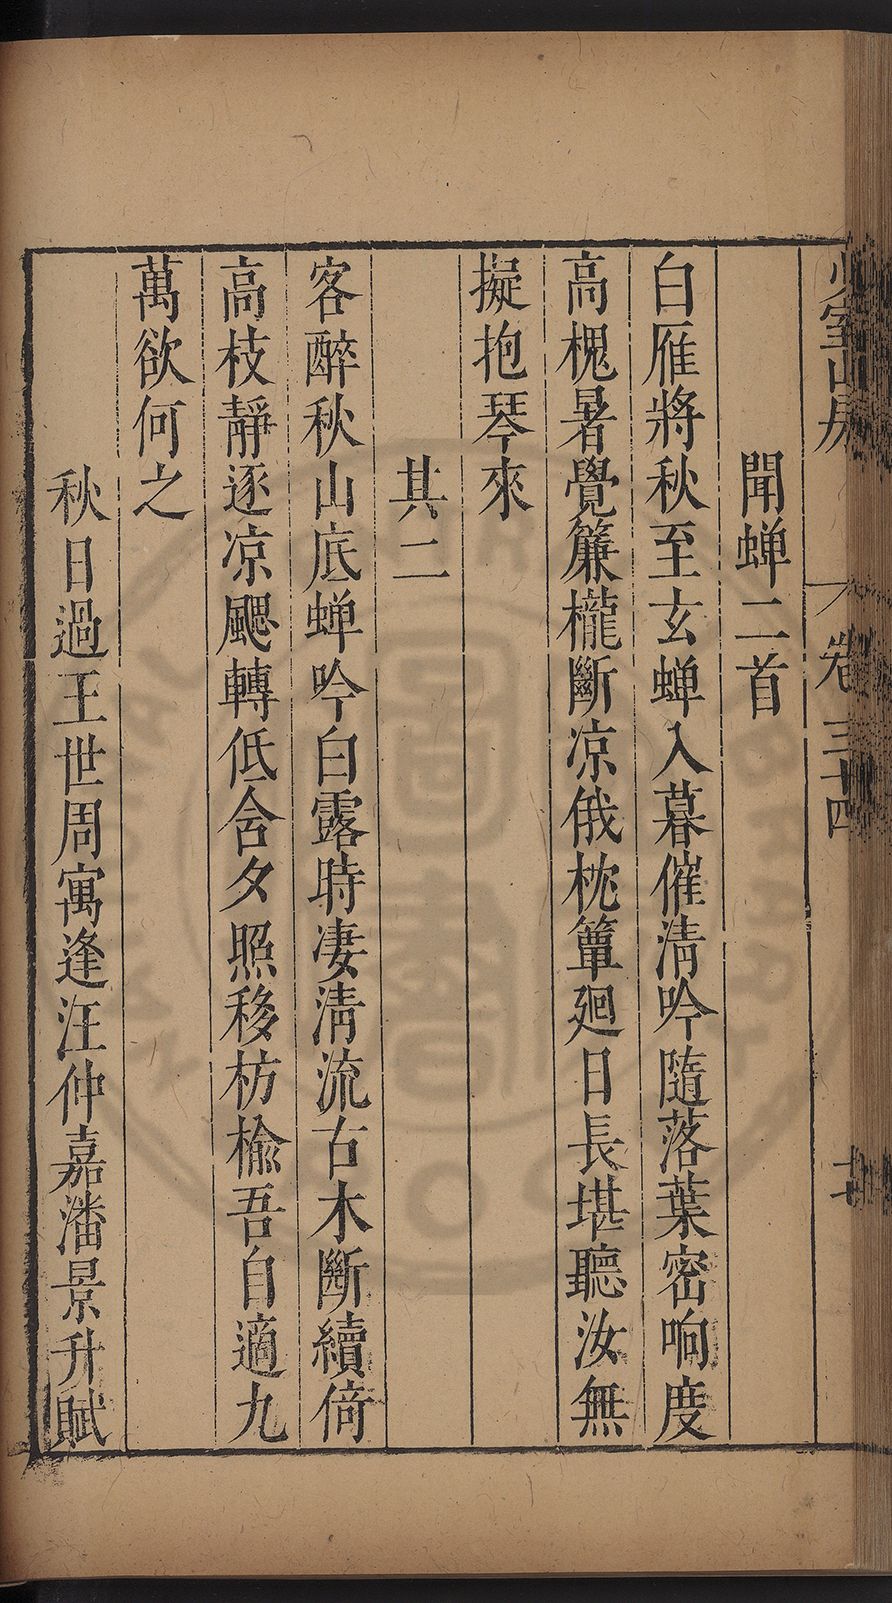 少室山房
卷三十四
聞蝉二首
白雁將秋至玄蝉入暮催清吟隨落葉密响度
高槐暑覺簾櫳斷凉俄枕簟廻日長堪聽汝無
擬抱琴來
其二
客醉秋山底蝉吟白露時凄清流古木斷續倚
高枝靜逐凉颸轉低含夕照移枋榆吾自適九
萬欲何之
秋日過王世周寓逢汪仲嘉潘景升賦